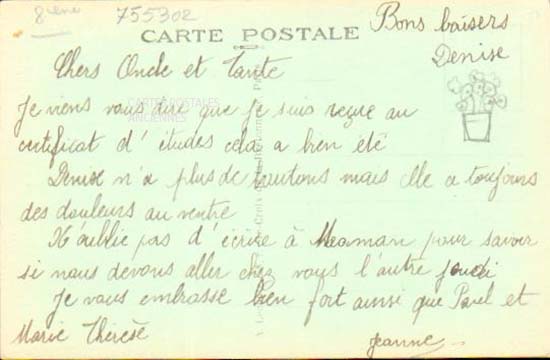 8ème 755302
Bons baisers
CARTE POSTALE
Denise
Chers Oncle et Tante
CARTES POSTALES
ANCIENNES
Je viens vous dire que je suis reçue au
certificat d'études cela a bien été
Denise n'a plus de boutons mais elle a toujours
des douleurs au ventre
N'oublie pas d'écrire à Meaman pour savoir
si nous devons aller chez vous l'autre jeudi
Je vous embrasse bien fort ainsi que Paul et
Marie Thérèse
Jeanne